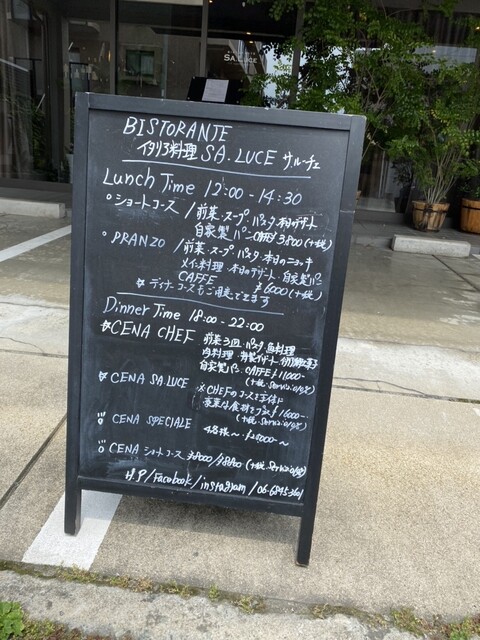 SA.LUCE
BISTORANTE
イタリア料理 SA.LUCE サルーチェ
Lunch Time 12:00 - 14:30
ショートコース / 前菜・スープ・パスタ・本日のデザート
自家製パン・CAFFE 3,800 (+税)
PRANZO / 前菜・スープ・パスタ・本日のニョッキ
メイン料理・本日のデザート・自家製パン
CAFFE ¥6000 (+税)
☆ディナーコースもご用意できます
Dinner Time 18:00 - 22:00
☆CENA CHEF 前菜3皿・パスタ・魚料理
肉料理・特製デザート
自家製パン・CAFFE ¥11000-
(+税. Service
☆ CENA SA.LUCE ※CHEFのコースを主体に
¥16000-
(+税. Service
CENA SPECIALE 4名様〜
CENA ショートコース ¥8000/¥8800 (+税. Service
H.P/Facebook/instagram/06-6845-